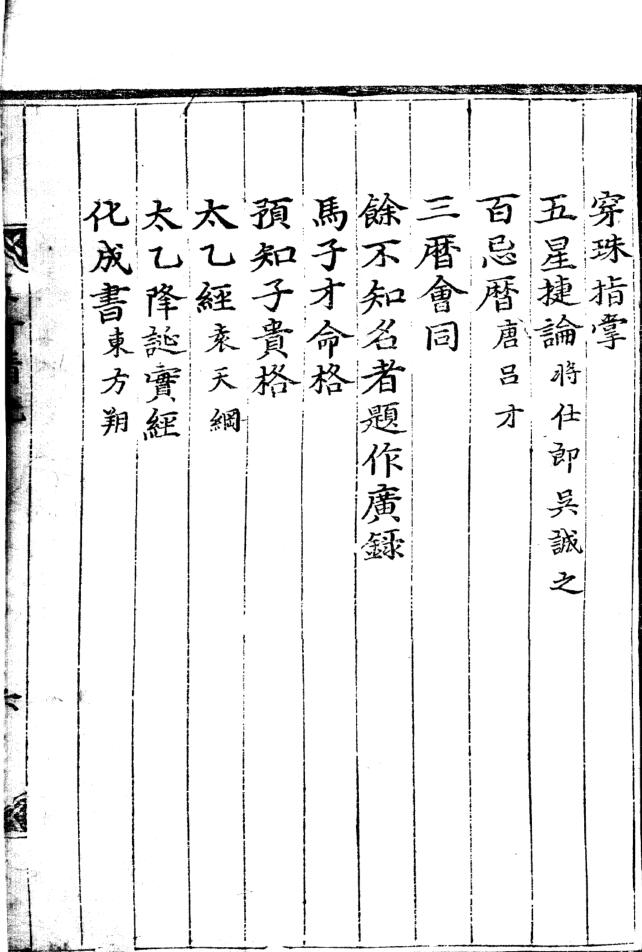 穿珠指掌
五星捷論 將仕郎吳誠之
百忌曆 唐呂才
三曆會同
餘不知名者題作廣錄
馬子才命格
預知子貴格
太乙經 袁天綱
太乙降誕寶經
化成書 東方朔
六